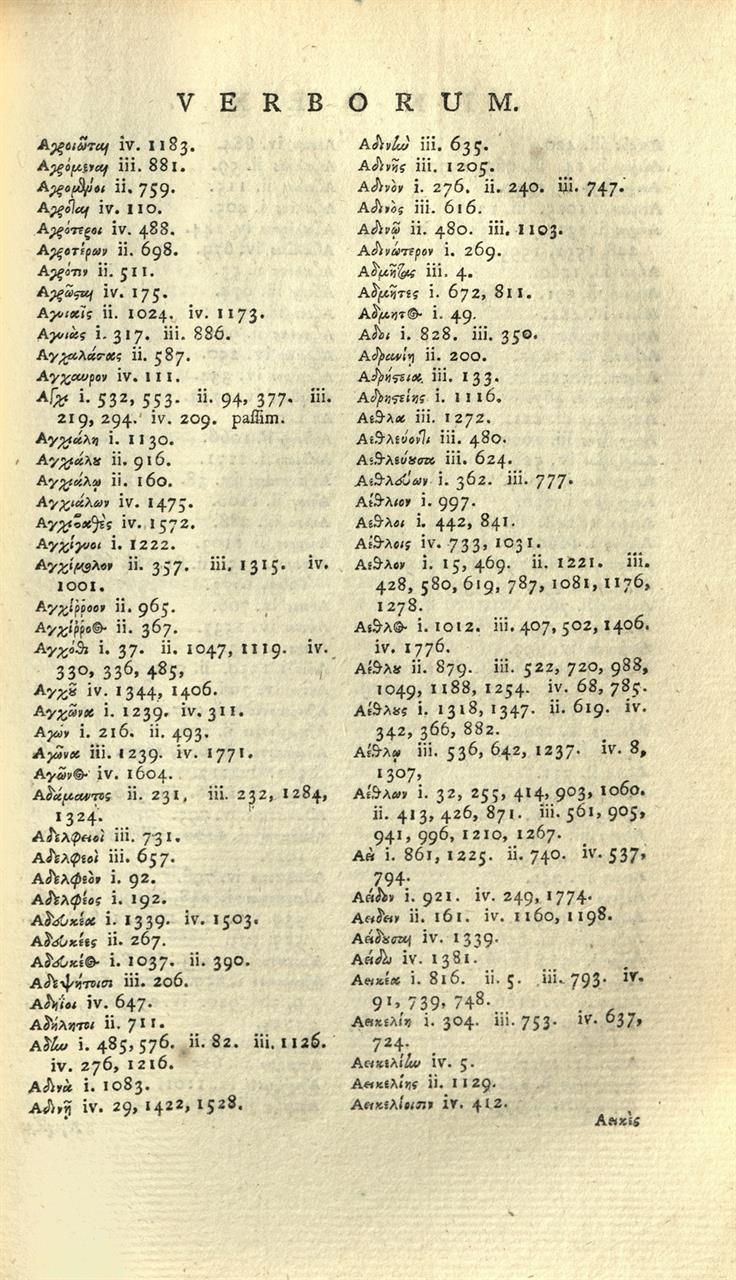 VERBORUM.
Αγροιῶται iv. 1183.
Αγρόμεναι iii. 881.
Αγρομένοι ii. 759.
Αγρόται iv. 110.
Αγρότεροι iv. 488.
Αγροτέρων ii. 698.
Αγρότην ii. 511.
Αγρῶσται iv. 175.
Αγυιαῖς ii. 1024. iv. 1173.
Αγυιὰς i. 317. iii. 886.
Αγχαλάσας ii. 587.
Αγχαυρον iv. 111.
Αγχι i. 532, 553. ii. 94, 377. iii.
219, 294. iv. 209. passim.
Αγχιάλη i. 1130.
Αγχιάλου ii. 916.
Αγχιάλῳ ii. 160.
Αγχιάλων iv. 1475.
Αγχιβαθὲς iv. 1572.
Αγχίγυοι i. 1222.
Αγχίμολον ii. 357. iii. 1315. iv.
1001.
Αγχίῤῥοον ii. 965.
Αγχίῤῥος ii. 367.
Αγχόθι i. 37. ii. 1047, 1119. iv.
330, 336, 485,
Αγχοῦ iv. 1344, 1406.
Αγχῶνα i. 1239. iv. 311.
Αγων i. 216. ii. 493.
Αγῶνα iii. 1239. iv. 1771.
Αγῶνος iv. 1604.
Αδάμαντος ii. 231, iii. 232, 1284,
1324.
Αδελφειοὶ iii. 731.
Αδελφεοὶ iii. 657.
Αδελφεὸν i. 92.
Αδελφέος i. 192.
Αδευκέα i. 1339. iv. 1503.
Αδευκέες ii. 267.
Αδευκέος i. 1037. ii. 390.
Αδεψήτοισι iii. 206.
Αδηΐοι iv. 647.
Αδήλητοι ii. 711.
Αδην i. 485, 576. ii. 82. iii. 1126.
iv. 276, 1216.
Αδινὰ i. 1083.
Αδινῇ iv. 29, 1422, 1528.
Αδινὴν iii. 635.
Αδινῆς iii. 1205.
Αδινὸν i. 276. ii. 240. iii. 747.
Αδινὸς iii. 616.
Αδινῷ ii. 480. iii. 1103.
Αδινώτερον i. 269.
Αδμῆτας iii. 4.
Αδμῆτες i. 672, 811.
Αδμητος i. 49.
Αδοι i. 828. iii. 350.
Αδρανίη ii. 200.
Αδρήστεια iii. 133.
Αδρηστείης i. 1116.
Αεθλα iii. 1272.
Αεθλεύοντι iii. 480.
Αεθλεύουσα iii. 624.
Αεθλεύων i. 362. iii. 777.
Αέθλιον i. 997.
Αεθλοι i. 442, 841.
Αέθλοις iv. 733, 1031.
Αεθλον i. 15, 469. ii. 1221. iii.
428, 580, 619, 787, 1081, 1176,
1278.
Αεθλος i. 1012. iii. 407, 502, 1406.
iv. 1776.
Αέθλου ii. 879. iii. 522, 720, 988,
1049, 1188, 1254. iv. 68, 785.
Αέθλους i. 1318, 1347. ii. 619. iv.
342, 366, 882.
Αέθλῳ iii. 536, 642, 1237. iv. 8,
1307,
Αέθλων i. 32, 255, 414, 903, 1060.
ii. 413, 426, 871. iii. 561, 905,
941, 996, 1210, 1267.
Αεὶ i. 861, 1225. ii. 740. iv. 537,
794.
Αείδον i. 921. iv. 249, 1774.
Αειδειν ii. 161. iv. 1160, 1198.
Αείδουσαι iv. 1339.
Αείδω iv. 1381.
Αεικέα i. 816. ii. 5. iii. 793. iv.
91, 739, 748.
Αεικελίη i. 304. iii. 753. iv. 637,
724.
Αεικελίην iv. 5.
Αεικελίης ii. 1129.
Αεικελίοισιν iv. 412.
Αεικὲς